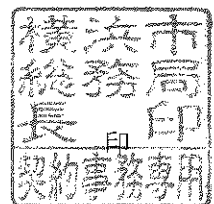 横浜市
総務局
長印
印
契約事務専用